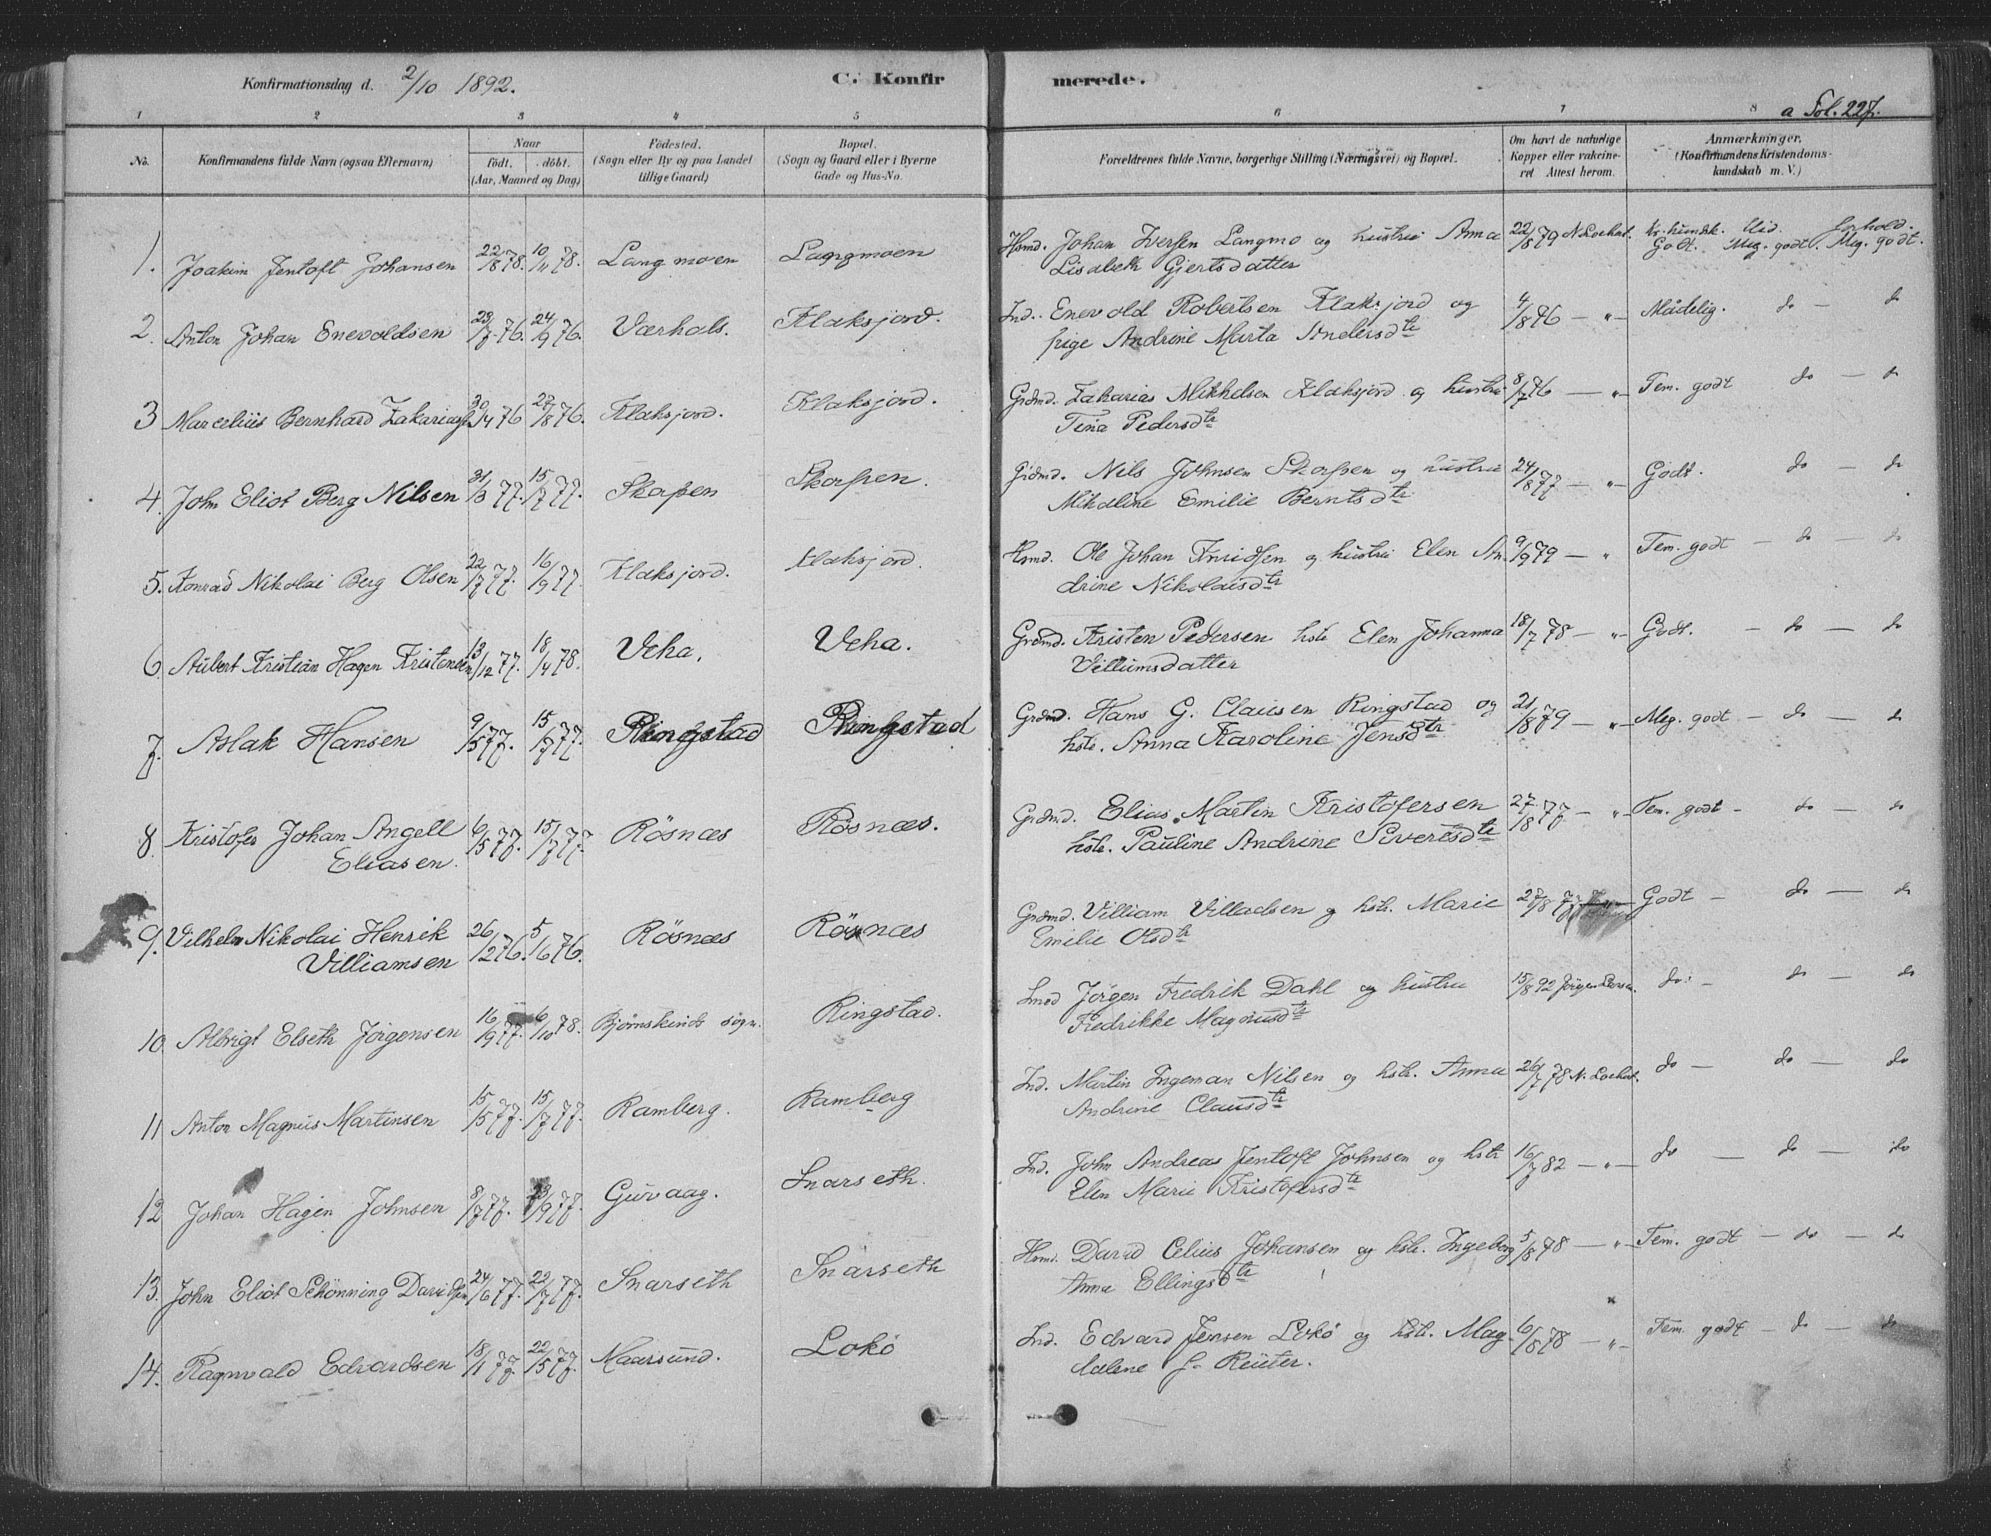 Konfirmationsdag d. 2/10 1892. C. Konfirmerede. a Fol. 227.
1 2 3 4 5 6 7 8
No. Konfirmandens fulde Navn (ogsaa Efternavn) Naar født. døbt. (Aar, Maaned og Dag) Fødested. (Sogn eller By og paa Landet tillige Gaard) Bopæl. (Sogn og Gaard eller i Byerne Gade og Hus-No. Forældrenes fulde Navne, borgerlige Stilling (Næringsvei) og Bopæl. Om havt de naturlige Kopper eller vakcineret Attest herom. Anmærkninger. (Konfirmandens Kristendomskundskab m. V.)
1. Joakim Jentoft Johansen 22/8 78. 10/11 78. Langmoen Langmoen Hsmd. Johan Iversen Langmo og hustru Anna 22/8 79 N. Lockert. Kr. kundsk. Flid. Forhold.
Lisabeth Gjertsdatter Godt. Meg. godt. Meg. godt.
2. Anton Johan Enevoldsen 23/7 76. 24/9 76. Værhals. Klaksjord. Ind. Enevold Robertsen Klaksjord og 4/8 76 — „ — Mådelig. do — do
pige Andrine Marta Andersdtr
3 Marcelius Bernhard Zakariass. 30/4 76 27/8 76. Klaksjord. Klaksjord. Grdmd. Zakarias Mikkelsen Klaksjord og hustru 8/7 76 — „ — Tem. godt do — do
Tina Pedersdtr
4. John Eliot Berg Nilsen 31/3 77. 15/7 77. Skarpen Skarpen. Grdmd. Nils Johnsen Skarpen og hustru 24/8 77 — „ — Godt. do — do
Mikaline Emilie Berntsdtr
5. Konrad Nikolai Berg Olsen 22/7 77. 16/9 77. Klaksjord. Klaksjord. Hsmd. Ole Johan Knudsen og hustru Elen An- 9/9 79 — „ Tem. godt — do — do
drine Nikolaisdtr
6. Aubert Kristian Hagen Kristensen 13/12 77. 18/4 78. Veha. Veha. Grdmd. Kristen Pedersen hstr Elen Johanna 18/7 78 — „ — Godt. — do — do
Villumsdatter
7. Aslak Hansen 9/5 77. 15/7 77. Ringstad Ringstad Grdmd. Hans G. Clausen Ringstad og 21/8 79 — „ — Meg. godt — do — do
hstr. Anna Karoline Jensdtr
8. Kristofer Johan Angell 6/5 77. 15/7 77. Røsnæs Røsnæs. Grdmd. Elias Martin Kristofersen 27/8 77. — „ — Tem. godt — do — do
Eliasen. hstr. Pauline Andrine Sivertsdtr
9. Vilhelm Nikolai Henrik 26/12 76. 5/6 76. Røsnæs Røsnæs Grdmd. Villiam Villadsen og hstr. Marie 28/8 77 Godt — do — do
Villiamsen Emilie Olsdtr
10 Albrigt Elseth Jørgensen 16/9 77. 6/10 78. Bjørnskinds sogn. Ringstad. Smed Jørgen Fredrik Dahl og hustru 15/8 92 do. — do — do
Fredrikke Magnusdtr
11 Anton Magnus Martinsen 15/5 77. 15/7 77. Ramberg. Ramberg Ind. Martin Ingeman Nilsen og hstr. Anna 26/7 78 N. Lockert. do — do — do
Andrine Clausdtr
12 Johan Hagen Johnsen 8/7 77. 23/9 77. Gurvaag. Snarseth. Ind. John Andreas Jentoft Johnsen og hstr 16/7 82 — „ — do — do — do
Elen Marie Kristofersdtr
13. John Eliot Schønning Davidsen 24/6 77. 22/7 77. Snarseth Snarseth Hsmd. David Celius Johansen og hstr. Ingeborg 5/8 78 — „ — Tem. godt — do — do
Anna Ellingsdtr
14. Ragnvald Edvardsen 18/1 77. 22/5 77. Maarsund. Lokø Ind. Edvard Jensen Lokø og hstr. Mag- 6/8 78 — „ — Tem. godt — do — do
dalene f. Reuter.